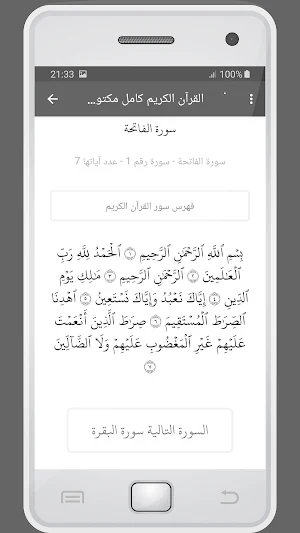 21:33 100%
القرآن الكريم كامل مكتو...
سورة الفاتحة
سورة الفاتحة - سورة رقم 1 - عدد آياتها 7
فهرس سور القرآن الكريم
بِسْمِ ٱللَّهِ ٱلرَّحْمَٰنِ ٱلرَّحِيمِ ١ ٱلْحَمْدُ لِلَّهِ رَبِّ
ٱلْعَٰلَمِينَ ٢ ٱلرَّحْمَٰنِ ٱلرَّحِيمِ ٣ مَٰلِكِ يَوْمِ
ٱلدِّينِ ٤ إِيَّاكَ نَعْبُدُ وَإِيَّاكَ نَسْتَعِينُ ٥ ٱهْدِنَا
ٱلصِّرَٰطَ ٱلْمُسْتَقِيمَ ٦ صِرَٰطَ ٱلَّذِينَ أَنْعَمْتَ
عَلَيْهِمْ غَيْرِ ٱلْمَغْضُوبِ عَلَيْهِمْ وَلَا ٱلضَّآلِّينَ
٧
السورة التالية سورة البقرة